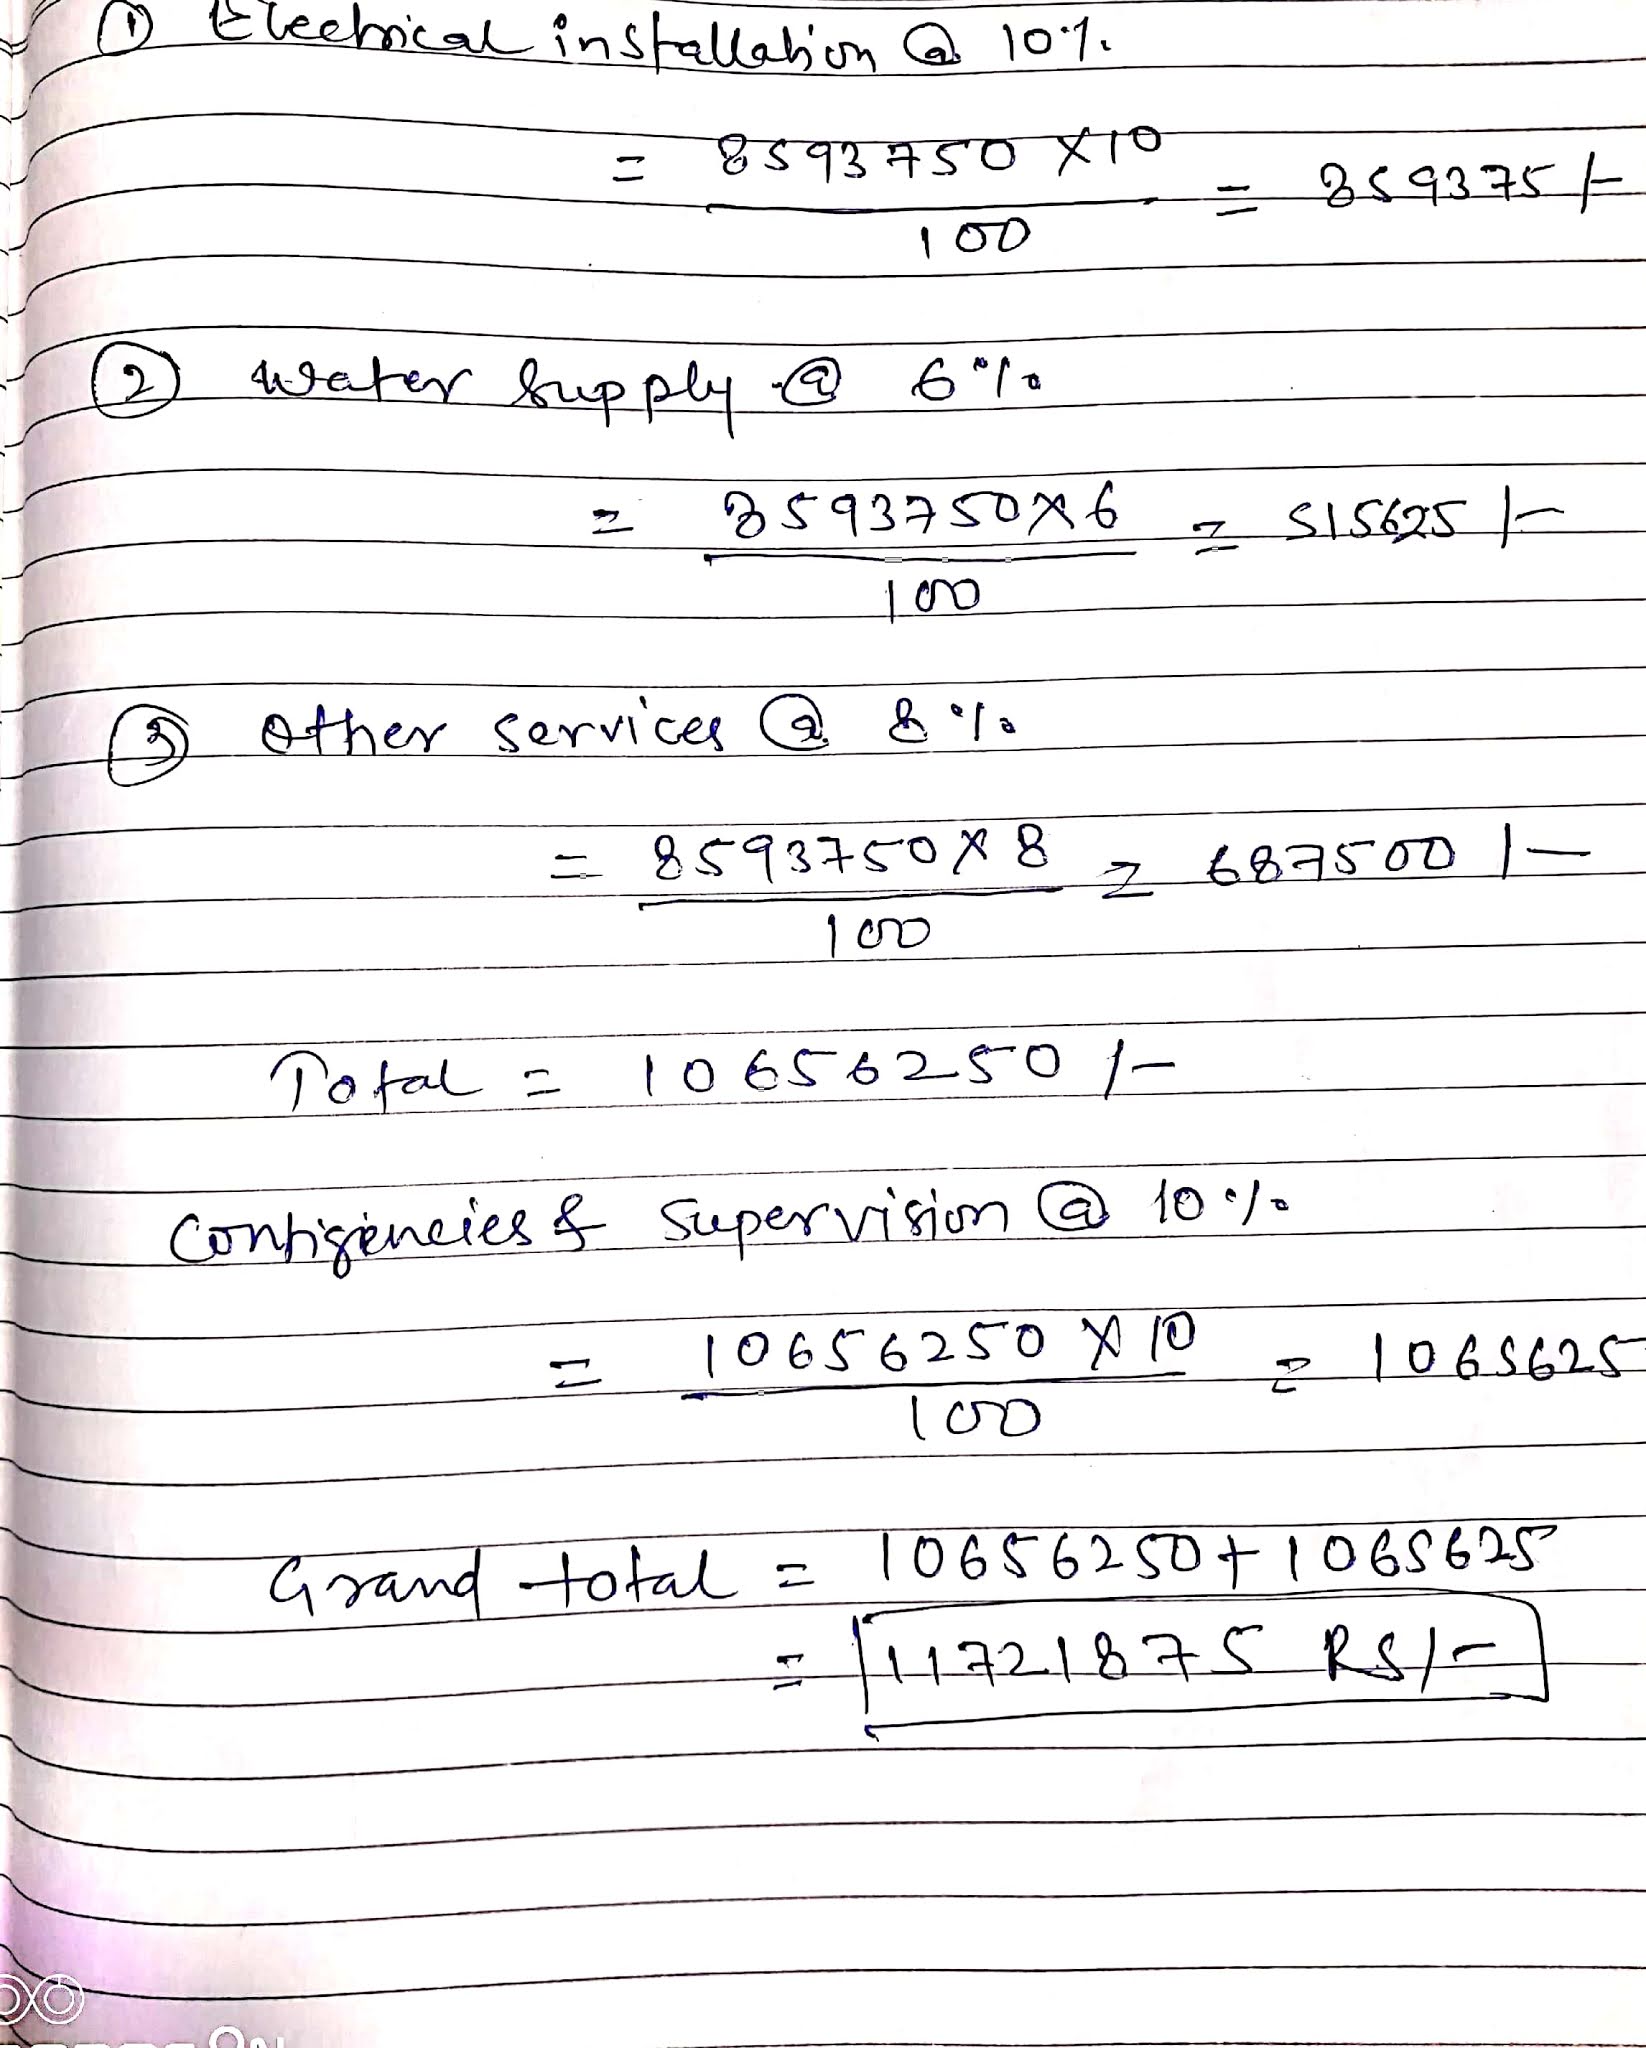 ① Electrical installation @ 10%
= 8593750 × 10 / 100 = 859375/-
② Water Supply @ 6%
= 8593750 × 6 / 100 = 515625/-
③ Other services @ 8%
= 8593750 × 8 / 100 = 687500/-
Total = 10656250/-
Contigencies & Supervision @ 10%
= 10656250 × 10 / 100 = 1065625
Grand total = 10656250 + 1065625
= 11721875 RS/-